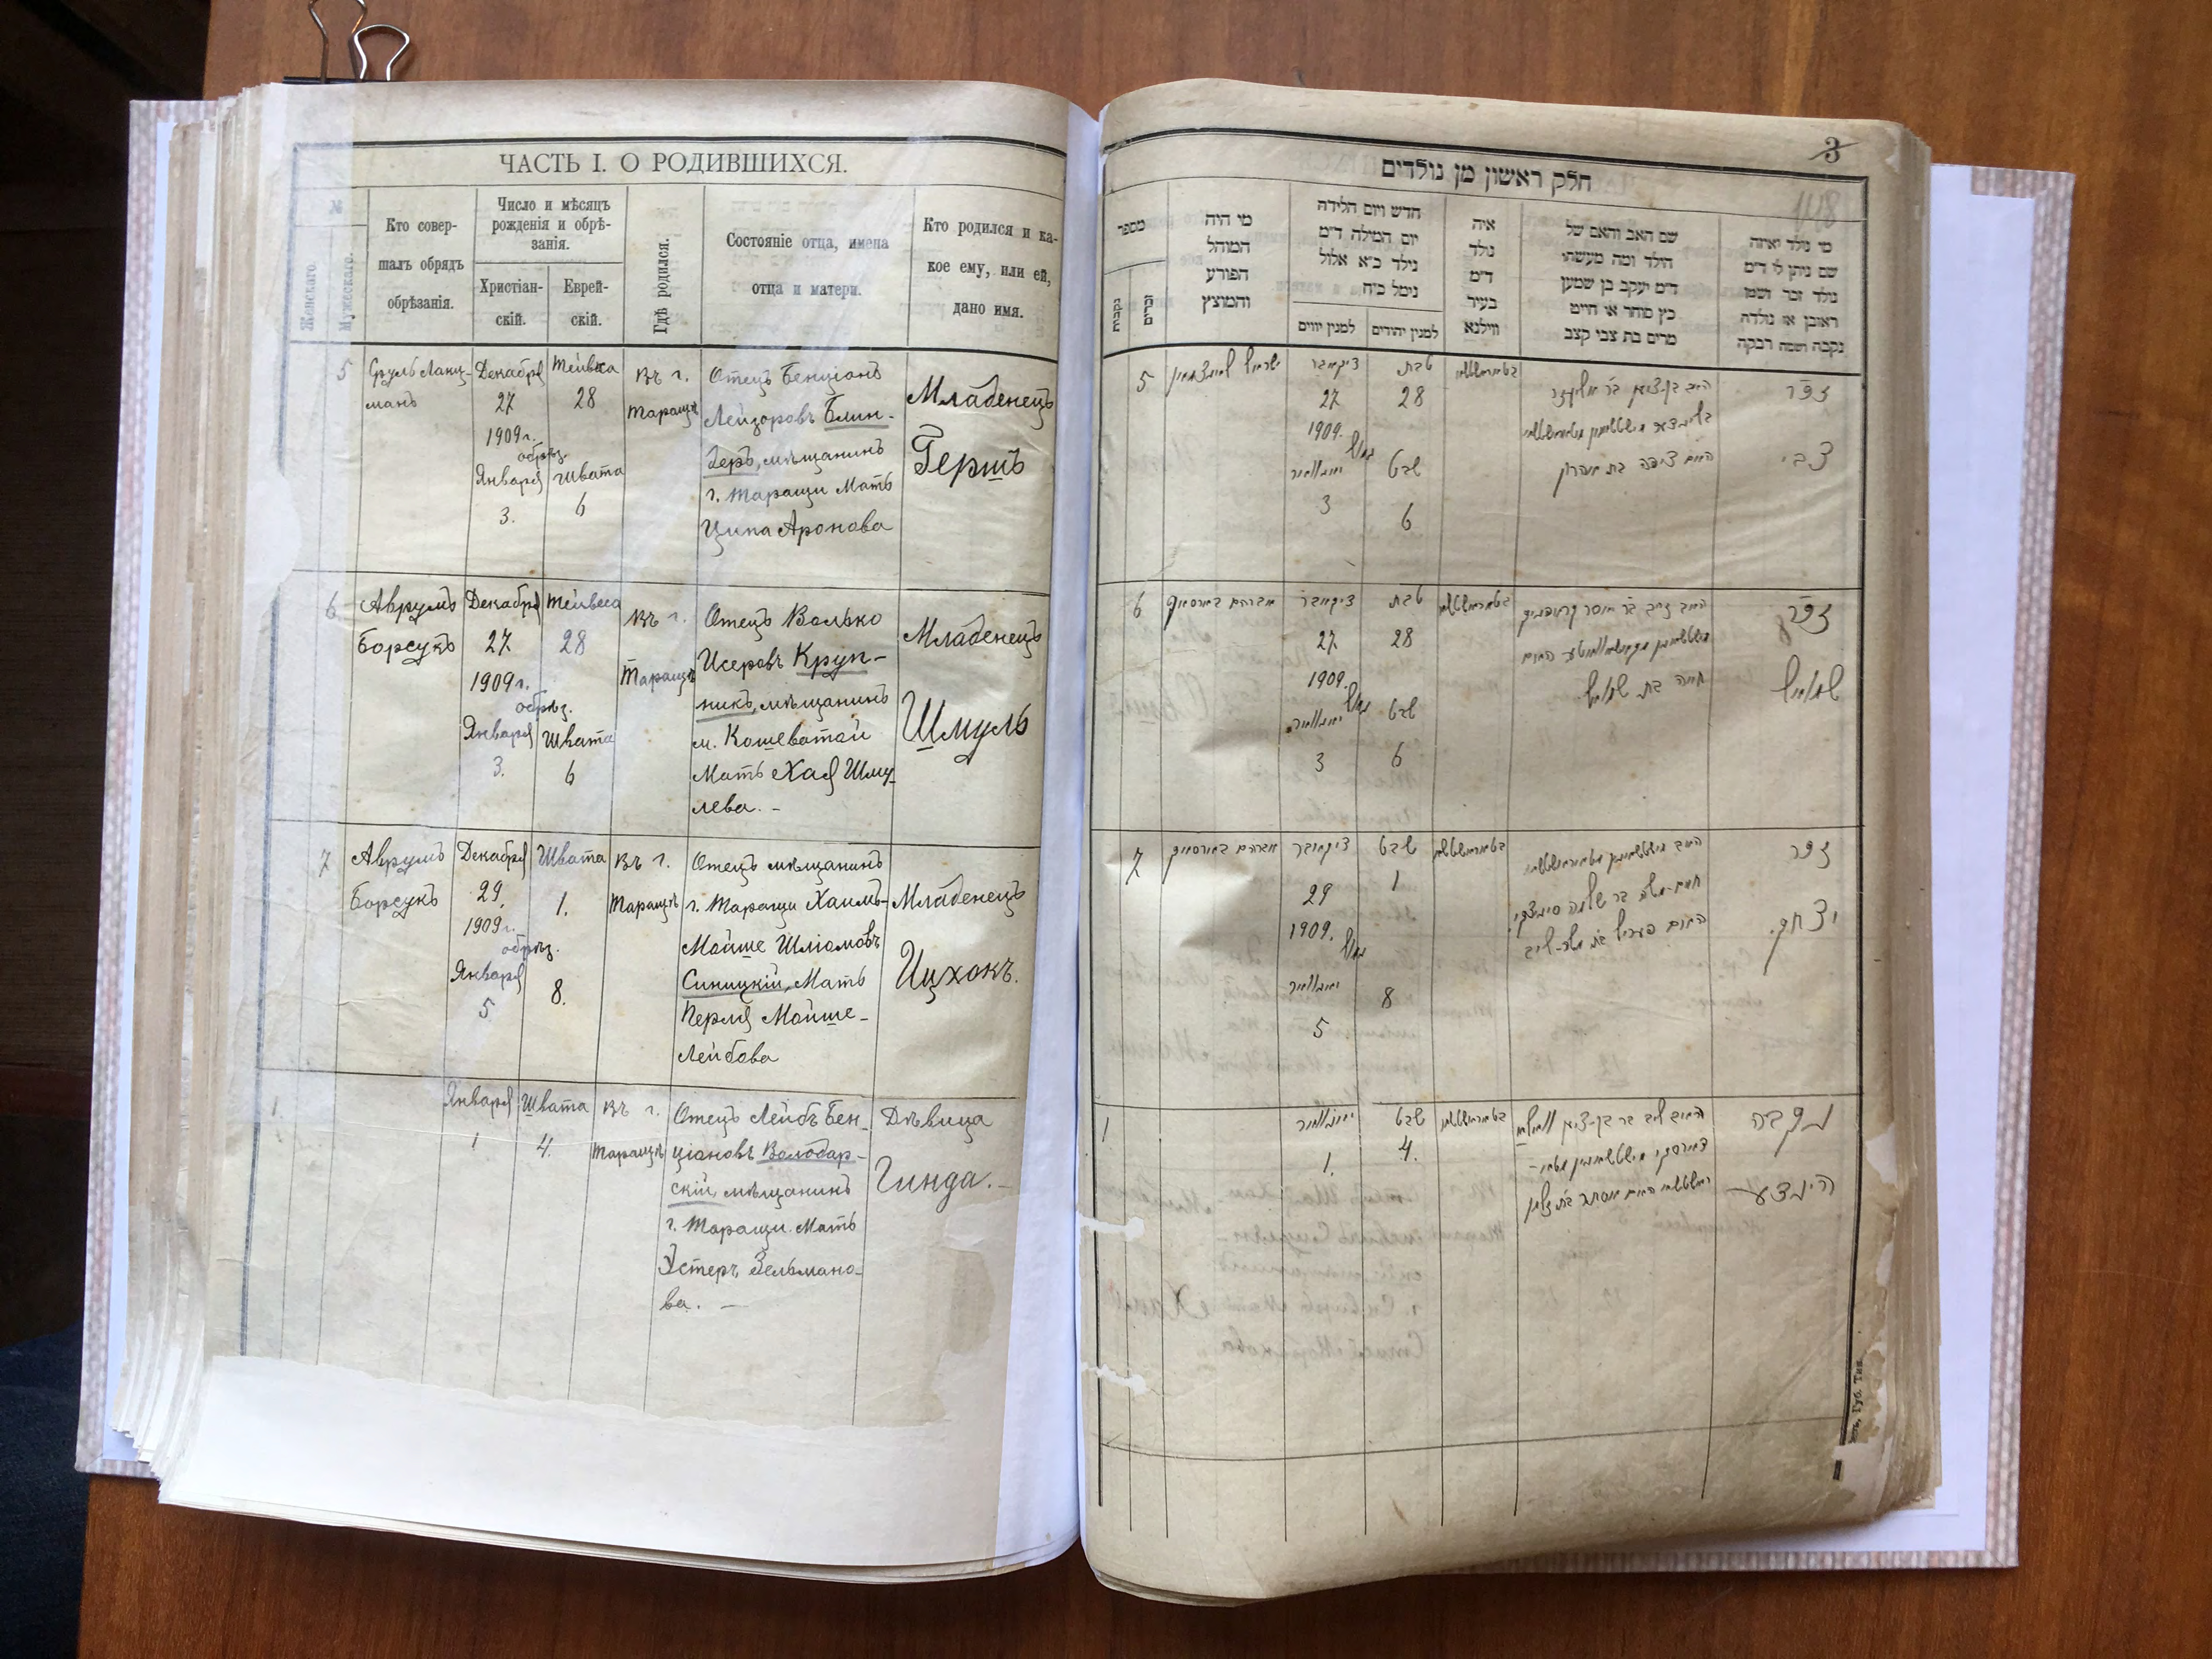 ЧАСТЬ I. О РОДИВШИХСЯ.
№
Женскаго.
Мужескаго.
Кто совер-
шалъ обрядъ
обрѣзанія.
Число и мѣсяцъ
рожденія и обрѣ-
занія.
Христіан-
скій.
Еврей-
скій.
Гдѣ родился.
Состояніе отца, имена
отца и матери.
Кто родился и ка-
кое ему, или ей,
дано имя.
5
Срулъ
манъ
Декабря
27
1909 г.
обрѣз.
Января
3.
28
Швата
6
Въ г.
Таращѣ
Отецъ Бенціонъ
Лейзоровъ Блин-
деръ, мѣщанинъ
г. Таращи Мать
Ципа Аронова
Младенецъ
Гершъ
6
Аврумъ
Борсукъ
Декабря
27
1909 г.
обрѣз.
Января
3.
Тейвеса
28
Швата
6
Въ г.
Таращѣ
Отецъ Волько
Исеровъ Круп-
никъ, мѣщанинъ
м. Кошеватой
Мать Хая Шму-
лева. -
Младенецъ
Шмуль
7
Аврумъ
Борсукъ
Декабря
29
1909 г.
обрѣз.
Января
5
Швата
1.
8.
Въ г.
Таращѣ
Отецъ мѣщанинъ
г. Таращи Хаимъ-
Мойше Шліомовъ
Синицкій, Мать
Перля Мойше-
Лейбова
Младенецъ
Ицхокъ.
1
Января
1
Швата
4.
Въ г.
Таращѣ
Отецъ Лейбъ Бен-
ціоновъ Володар-
скій, мѣщанинъ
г. Таращи. Мать
Эстеръ Зельмано-
ва. —
Дѣвица
Гинда. -
3
118
חלק ראשון מן נולדים
מספר
נקבות
זכרים
מי היה
המוהל
הפורע
והמוצץ
חדש ויום הלידה
יום המילה ד״מ
נולד כ״א אלול
נימל כ״ח
למנין יווים
למנין יהודים
איה
נולד
ד״מ
בעיר
ווילנא
שם האב והאם של
הילד ומה מעשהו
ד״מ יעקב בן שמעון
כץ סוחר או חייט
מרים בת צבי קצב
מי נולד ואיזה
שם ניתן לו ד״מ
נולד זכר ושמו
ראובן או נולדה
נקבה ושמה רבקה
5
דיקאבר
27
1909.
3
טבת
28
שבט
6
האם ציפה בת אהרון
זכר
צבי
6
אברהם בארסוק
דיקאבר
27
1909.
3
טבת
28
שבט
6
חיה בת שמואל
זכר
שמואל
7
אברהם בארסוק
דיקאבר
29
1909.
5
שבט
1
8
זכר
יצחק.
1
1.
שבט
4.
נקבה
הינדע
Губ. Тип.